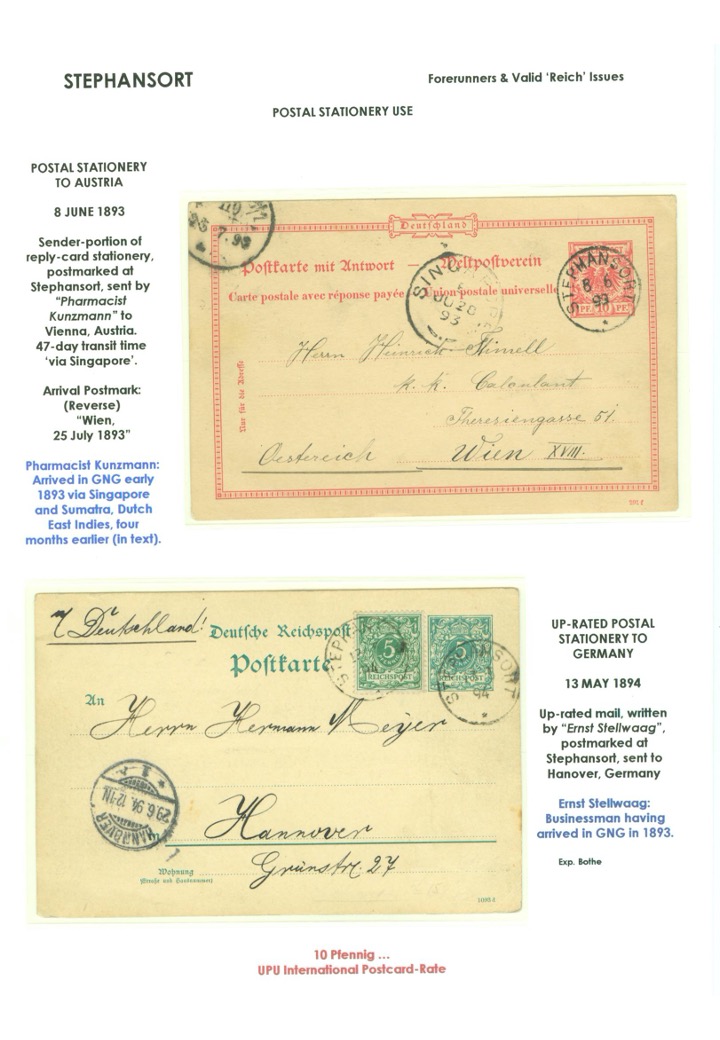 STEPHANSORT
Forerunners & Valid 'Reich' Issues
POSTAL STATIONERY USE
POSTAL STATIONERY
TO AUSTRIA
8 JUNE 1893
Sender-portion of
reply-card stationery,
postmarked at
Stephansort, sent by
"Pharmacist
Kunzmann" to
Vienna, Austria.
47-day transit time
'via Singapore'.
Arrival Postmark:
(Reverse)
"Wien,
25 July 1893"
Pharmacist Kunzmann:
Arrived in GNG early
1893 via Singapore
and Sumatra, Dutch
East Indies, four
months earlier (in text).
Deutschland
Postkarte mit Antwort — Weltpostverein
Carte postale avec réponse payée Union postale universelle
STEPHANSORT
8 6
93
PF. 10 PF.
SING
JU 20
93
7.93
Nur für die Adresse
Herrn Heinrich
k. k. Calculant
Theresiengasse 51.
Oestereich Wien XVIII.
Deutschland!
Deutsche Reichspost
Postkarte
5
REICHSPOST
REICHSPOST
STEPHANSORT
94
An
Herrn Hermann Meyer
29.6.94. 12-1N.
HANNOVER
in Hannover
Grünstr. 27
Wohnung
(Straße und Hausnummer)
UP-RATED POSTAL
STATIONERY TO
GERMANY
13 MAY 1894
Up-rated mail, written
by "Ernst Stellwaag",
postmarked at
Stephansort, sent to
Hanover, Germany
Ernst Stellwaag:
Businessman having
arrived in GNG in 1893.
Exp. Bothe
10 Pfennig ...
UPU International Postcard-Rate